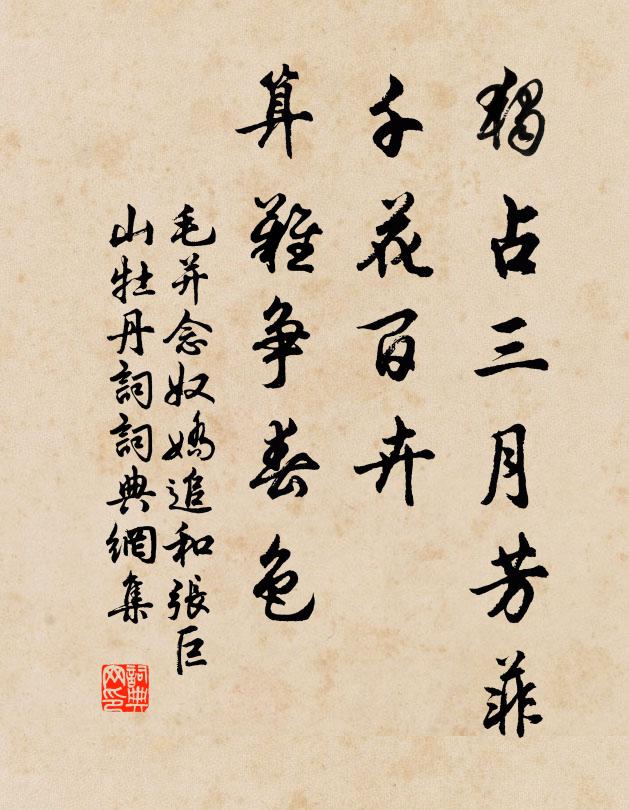 獨占三月芳菲
千花百卉
算難爭春色
毛并念奴嬌追和張巨
山牡丹詞詞典網集
詞典
网印